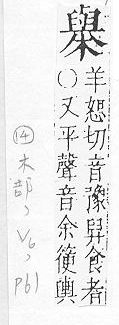 羊恕切音豫舁食者
○又平聲音余箯輿
⑭木部, V6, P61